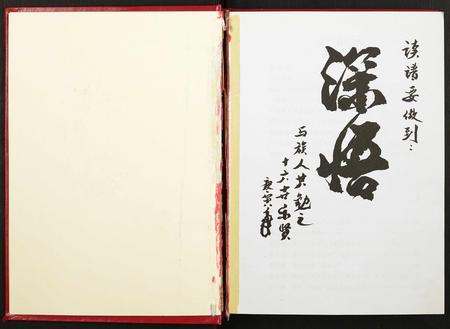 读谱要做到:
深悟
与族人共勉之
十六世乐贤
庚寅春